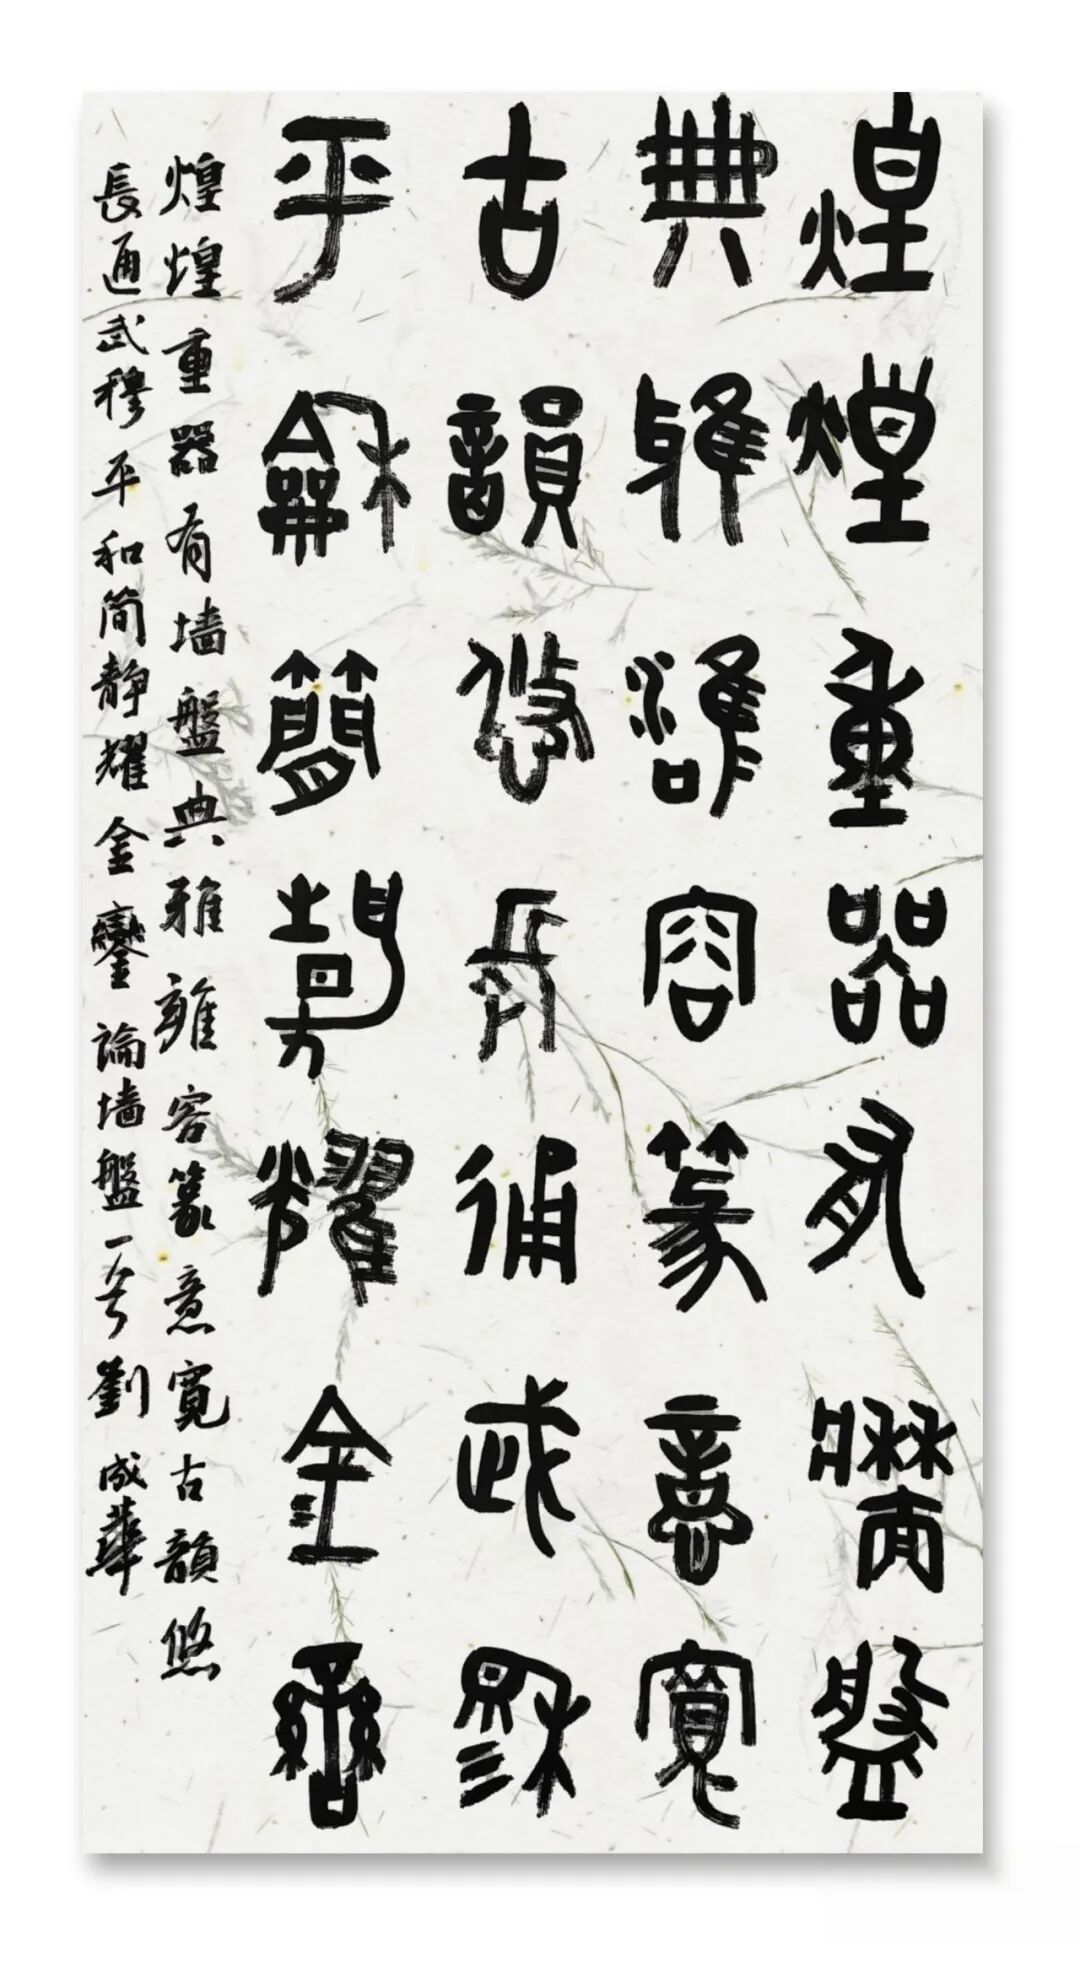 煌煌重器有牆盤
典雅雝容篆意寬
古韻悠長通武穆
平龢簡靜耀金鑾
煌煌重器有墙盤典雅雍容篆意寬古韻悠
長通武穆平和简静耀金鑾論墙盤一首劉成華